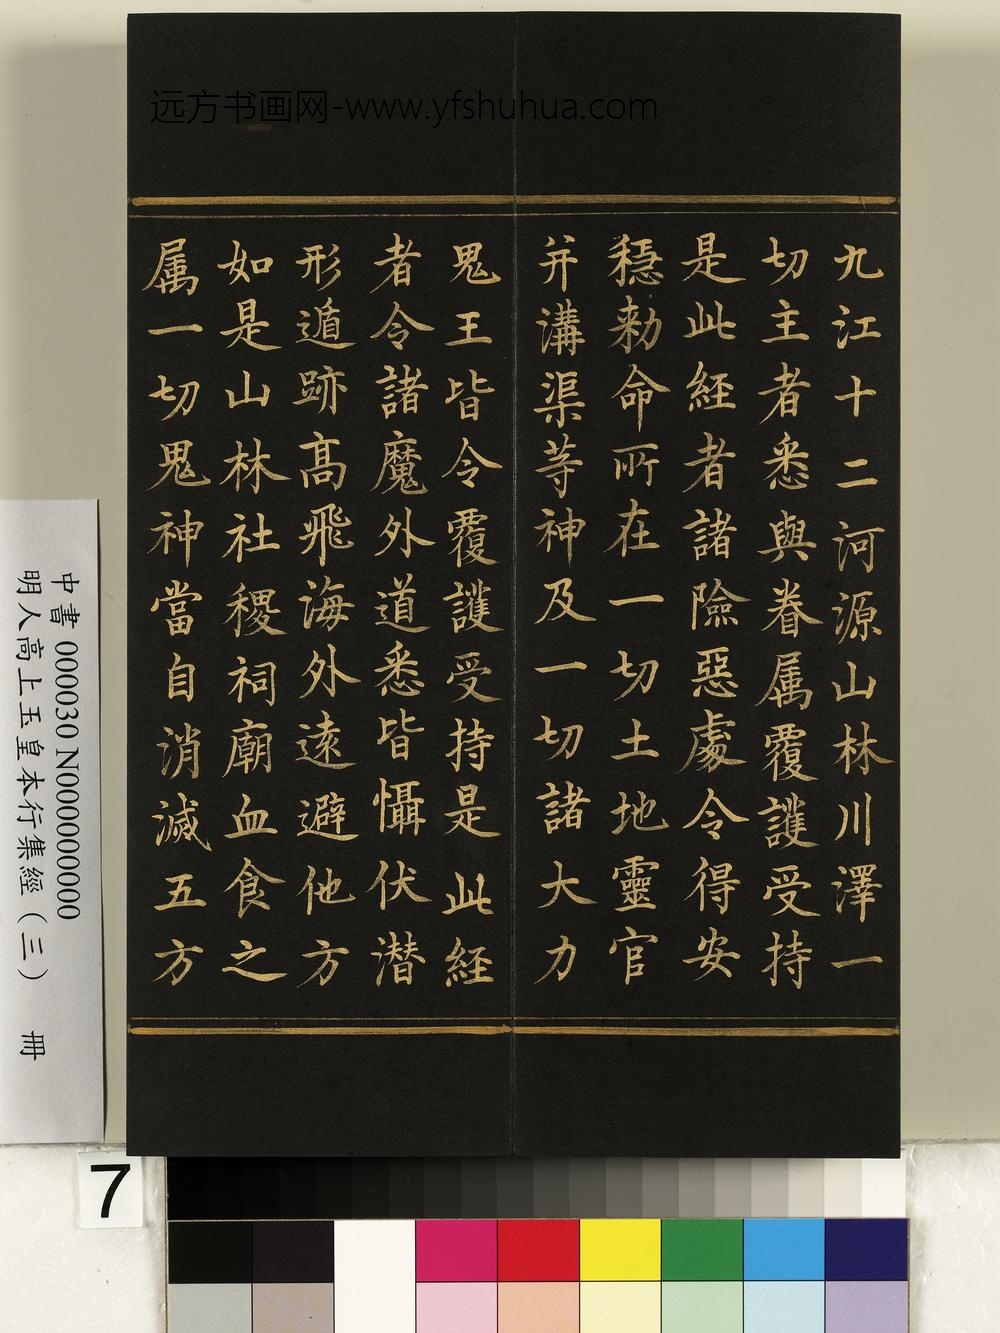 远方书画网-www.yfshuhua.com
九江十二河源山林川澤一
切主者悉與眷属覆護受持
是此經者諸險惡處令得安
穩勑命所在一切土地靈官
并溝渠等神及一切諸大力
鬼王皆令覆護受持是此經
者令諸魔外道悉皆懾伏潜
形遁跡高飛海外遠避他方
如是山林社稷祠廟血食之
属一切鬼神當自消滅五方
中書 000030 N000000000
明人高上玉皇本行集經（三） 冊
7